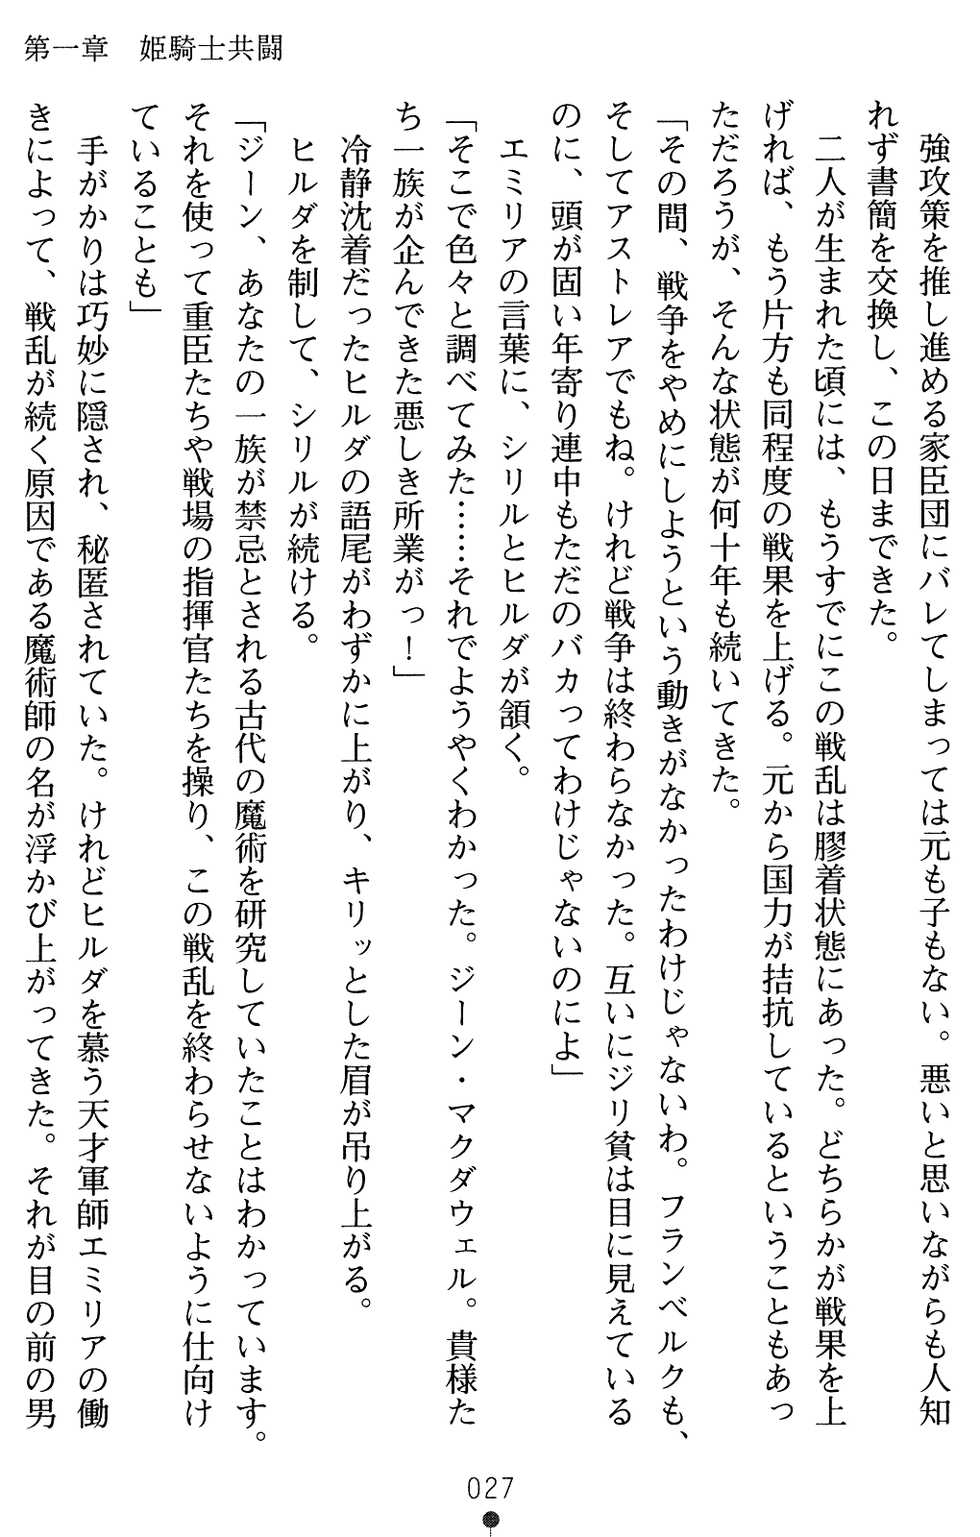 第一章　姫騎士共闘
　強攻策を推し進める家臣団にバレてしまっては元も子もない。悪いと思いながらも人知
れず書簡を交換し、この日まできた。
　二人が生まれた頃には、もうすでにこの戦乱は膠着状態にあった。どちらかが戦果を上
げれば、もう片方も同程度の戦果を上げる。元から国力が拮抗しているということもあっ
ただろうが、そんな状態が何十年も続いてきた。
「その間、戦争をやめにしようという動きがなかったわけじゃないわ。フランベルクも、
そしてアストレアでもね。けれど戦争は終わらなかった。互いにジリ貧は目に見えている
のに、頭が固い年寄り連中もただのバカってわけじゃないのによ」
　エミリアの言葉に、シリルとヒルダが頷く。
「そこで色々と調べてみた……それでようやくわかった。ジーン・マクダウェル。貴様た
ち一族が企んできた悪しき所業がっ！」
　冷静沈着だったヒルダの語尾がわずかに上がり、キリッとした眉が吊り上がる。
　ヒルダを制して、シリルが続ける。
「ジーン、あなたの一族が禁忌とされる古代の魔術を研究していたことはわかっています。
それを使って重臣たちや戦場の指揮官たちを操り、この戦乱を終わらせないように仕向け
ていることも」
　手がかりは巧妙に隠され、秘匿されていた。けれどヒルダを慕う天才軍師エミリアの働
きによって、戦乱が続く原因である魔術師の名が浮かび上がってきた。それが目の前の男
027